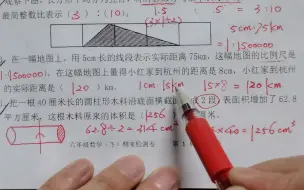 最简整数比表示 ( 3 ) : ( 10 )
1.5
(3×1.5)
5cm:75km
在一幅地图上, 用5cm长的线段表示75km, 这幅地图的比例尺是
1:1500000, 在这幅地图上量得小红家到杭州的距离是8cm, 小红家到杭州
的实际距离是 ( 120 ) km. 1cm 15km 15×8=120km
1:1500000
把一根40厘米长的圆柱形木料沿底面横截 2段, 表面积增加了62.8
平方厘米, 这根木料原来的体积是 ( 1256
62.8÷2=31.4cm² ×40=1256cm³
六年级数学 (下) 期末检测卷 第1